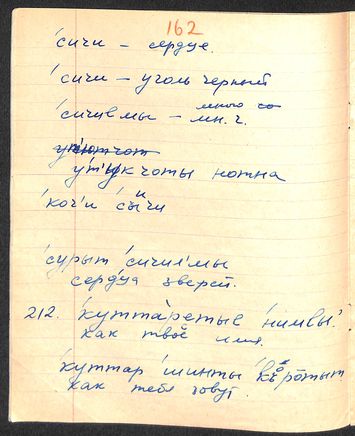 162
'сичи – сердце.
'сичи – уголь черный
'сичиемы – мн. ч.
много со
ут'ы'кчоты нотна
'коч'и 'сычи
и
'сурыт 'сичиемы
сердца зверей.
212. 'кутта'ретые 'нимвы?
как твоё имя.
'куттар 'шинты 'къ̄рōтыт
как тебя зовут.